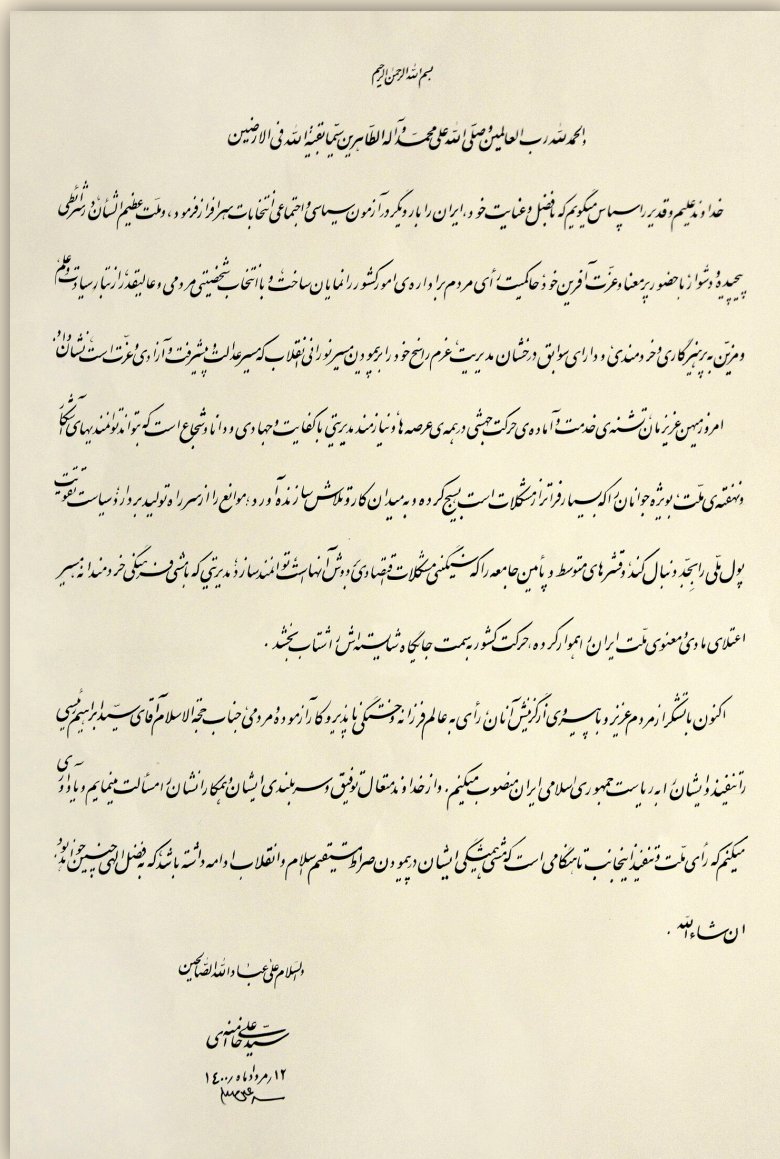 بسم الله الرحمن الرحیم
والحمد لله رب العالمین و صلی الله علی محمد و آله الطاهرین سیما بقیة الله فی الارضین
خداوند علیم و قدیر را سپاس میگویم که با فضل و عنایت خود، ایران را بار دیگر در آزمون سیاسی و اجتماعی انتخابات سرافراز فرمود، و ملت عظیم الشأن در شرائطی
پیچیده و دشوار با حضور پرمعنا و عزت آفرین خود حاکمیت رأی مردم بر اداره‌ی امور کشور را نمایان ساخت و با انتخاب شخصیتی مردمی و عالیقدر از تبار سیادت و علم
و مزین به پرهیزگاری و خردمندی و دارای سوابق درخشان مدیریت عزم راسخ خود را بر پیمودن مسیر نورانی انقلاب که مسیر عدالت و پیشرفت و آزادی و عزت است نشان داد.
امروز میهن عزیزمان تشنه‌ی خدمت و آماده‌ی حرکت جهشی در همه‌ی عرصه‌ها و نیازمند مدیریتی با کفایت و جهادی و دانا و شجاع است که بتواند توانمندیهای آشکار
و نهفته‌ی ملت بویژه جوانان را که بسیار فراتر از مشکلات است بسیج کرده و به میدان کار و تلاش سازنده آورد؛ موانع را از سر راه تولید بردارد و سیاست تقویت
پول ملی را بجد دنبال کند و قشرهای متوسط و پائین جامعه را که سنگینی مشکلات اقتصادی بر دوش آنهاست توانمند سازد مدیریتی که با مشی فرهنگی خردمندانه مسیر
اعتلای مادی و معنوی ملت ایران را هموار کرده، حرکت کشور به سمت جایگاه شایسته‌اش را شتاب بخشد.
اکنون با تشکر از مردم عزیز و با پیروی از گزینش آنان رأی به عالم فرزانه و خستگی ناپذیر و کارآزموده و مردمی جناب حجة الاسلام آقای سید ابراهیم رئیسی
را تنفیذ و ایشان را به ریاست جمهوری اسلامی ایران منصوب میکنم. و از خداوند متعال توفیق و سربلندی ایشان و همکارانشان را مسألت مینمایم و یادآوری
میکنم که رأی ملت و تنفیذ اینجانب تا هنگامی است که مشی همیشگی ایشان در پیمودن صراط مستقیم اسلام و انقلاب ادامه داشته باشد که به فضل الهی چنین خواهد بود
ان شاء الله.
والسلام علی عباد الله الصالحین
سید علی خامنه‌ای
۱۲ مرداد ماه ۱۴۰۰